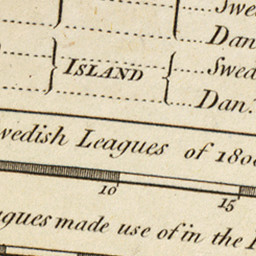 Dan
ISLAND
Swed
Dan.
Swedish Leagues of 180
10 15
agues made use of in the